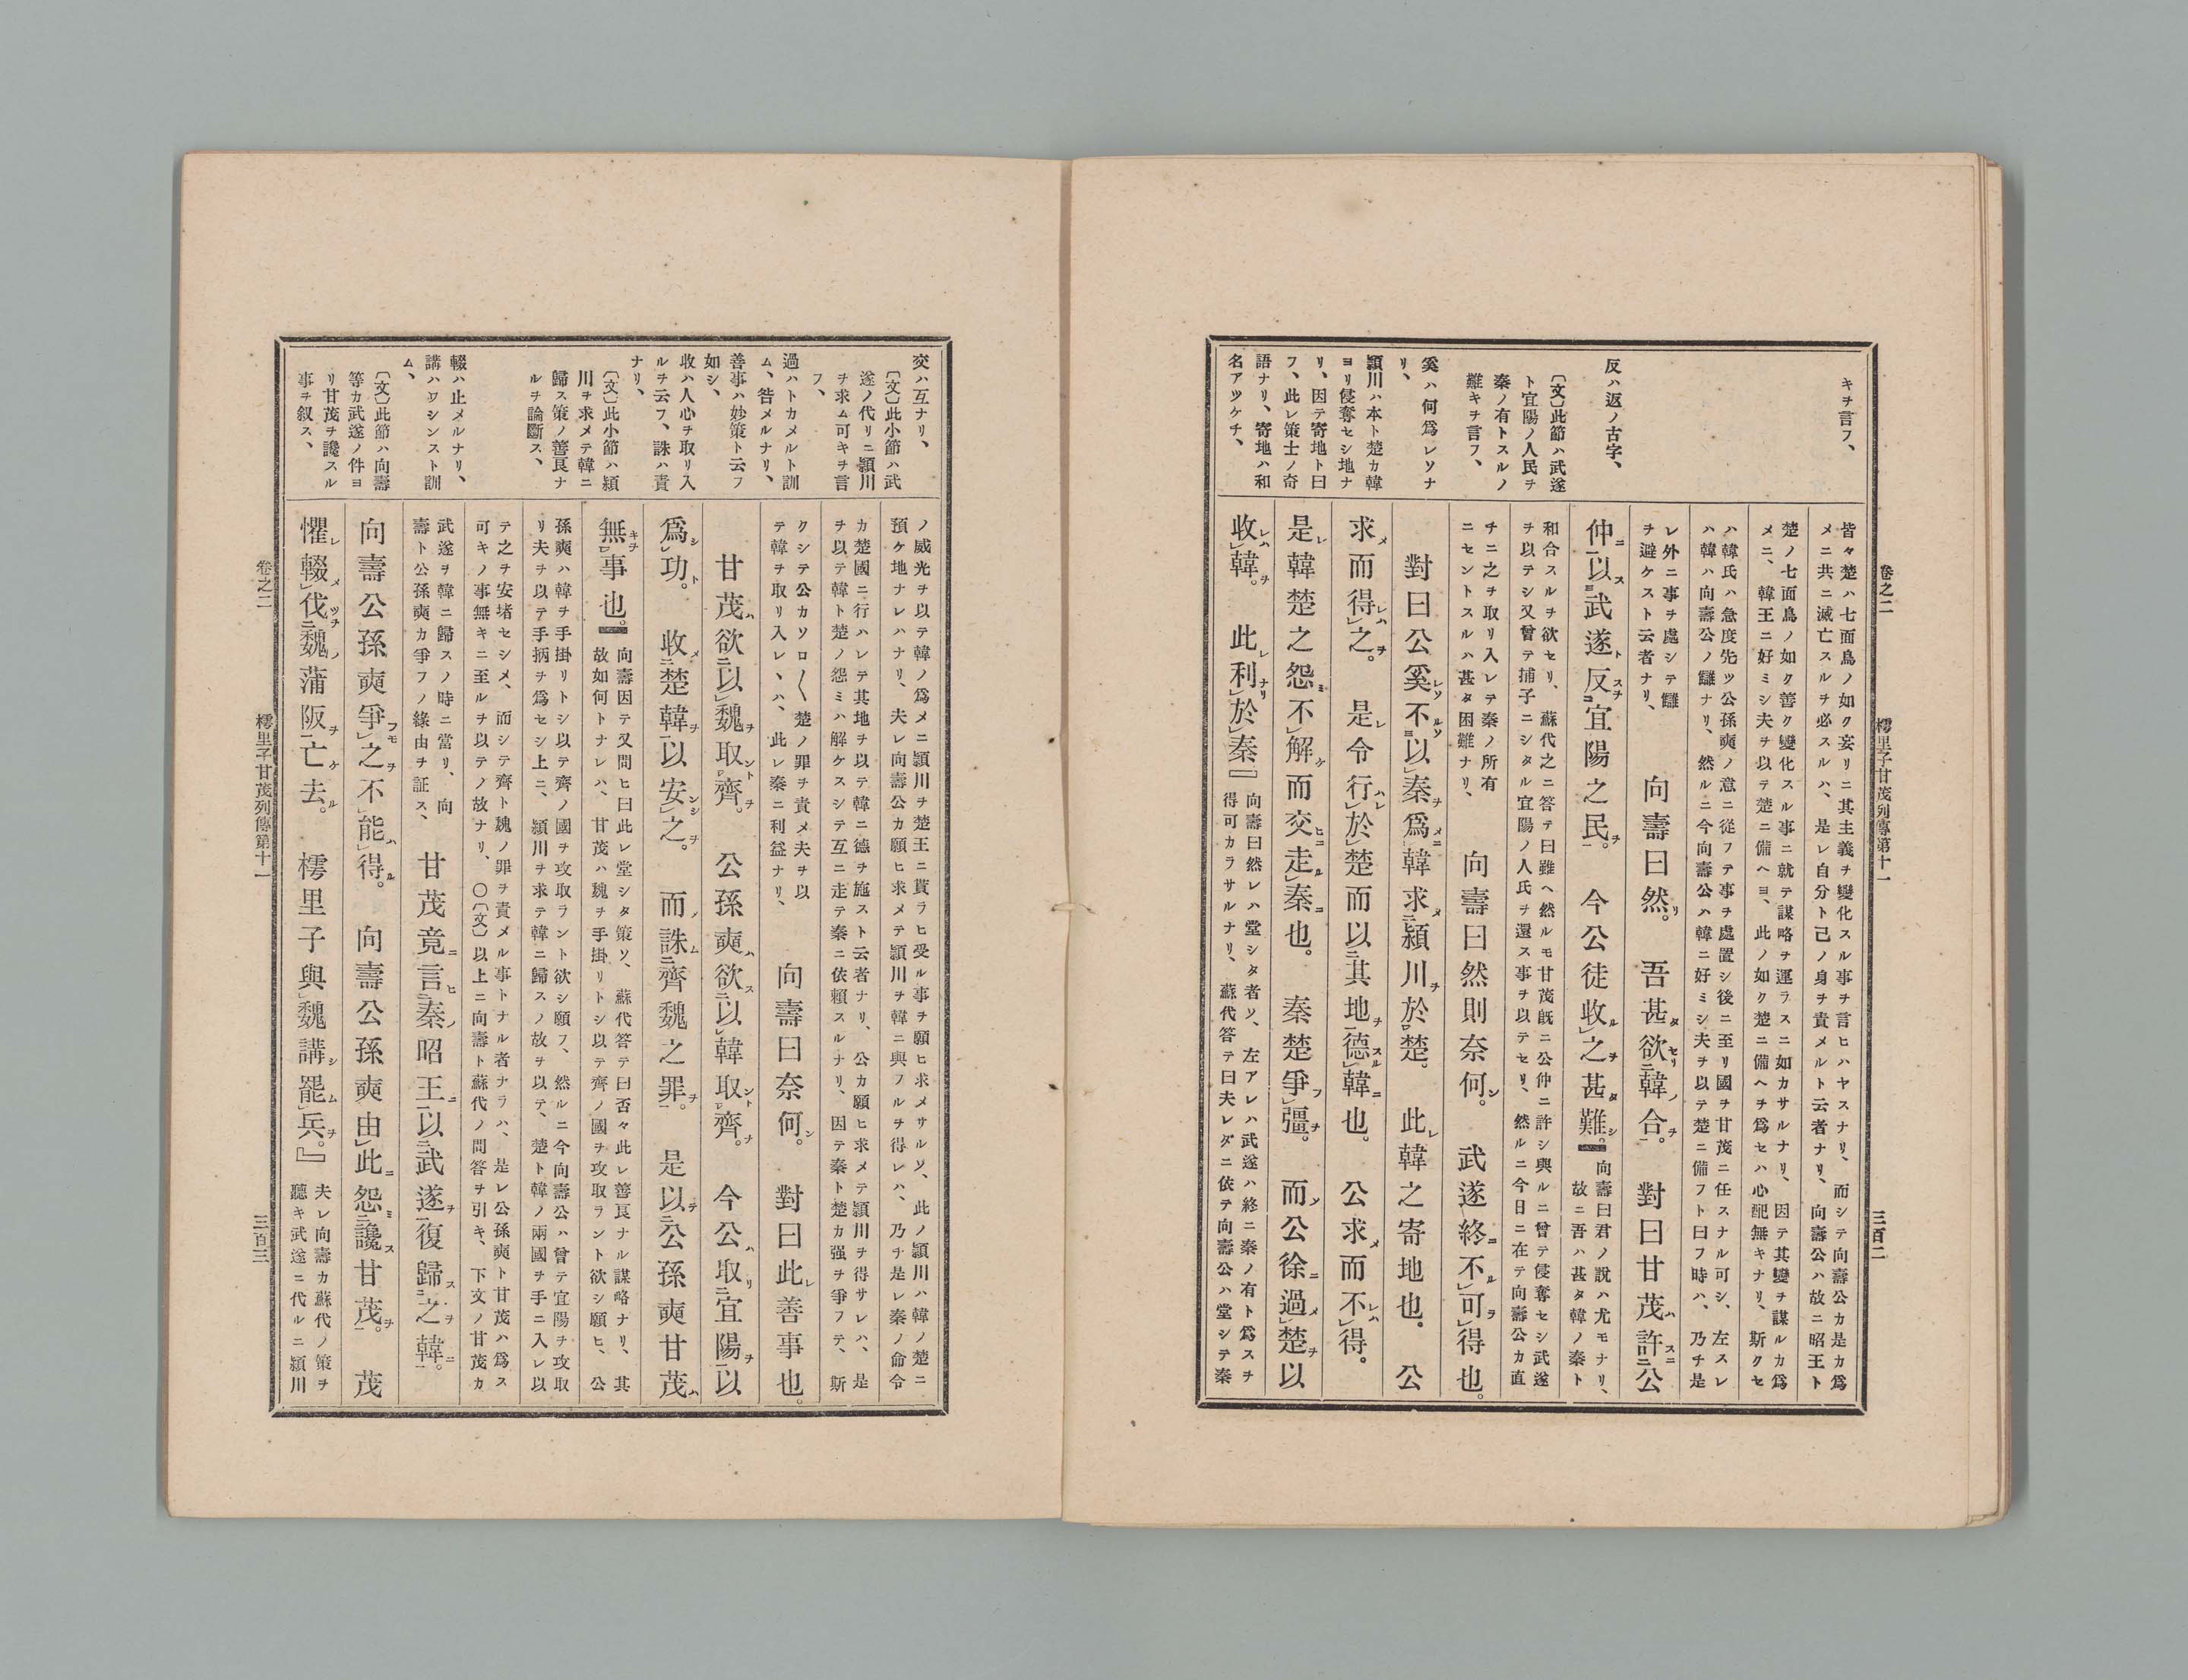 卷之二
樗里子甘茂列傳第十一
三百二
キヲ言フ、
反ハ返ノ古字、
〔文〕此節ハ武遂
ト宜陽ノ人民ヲ
秦ノ有トスルノ
難キヲ言フ、
奚ハ何爲レソナ
リ、
潁川ハ本ト楚カ韓
ヨリ侵奪セシ地ナ
リ、因テ寄地ト曰
フ、此レ策士ノ奇
語ナリ、寄地ハ和
名アツケチ、
皆々楚ハ七面鳥ノ如ク妄リニ其主義ヲ變化スル事ヲ言ヒハヤスナリ、而シテ向壽公カ是カ爲
メニ共ニ滅亡スルヲ必スルハ、是レ自分ト己ノ身ヲ責メルト云者ナリ、向壽公ハ故ニ昭王ト
楚ノ七面鳥ノ如ク善ク變化スル事ニ就テ謀略ヲ運ラスニ如カサルナリ、因テ其變ヲ謀ルカ爲
メニ、韓王ニ好ミシ夫ヲ以テ楚ニ備ヘヨ、此ノ如ク楚ニ備ヘヲ爲セハ心配無キナリ、斯クセ
ハ韓氏ハ急度先ツ公孫奭ノ意ニ從フテ事ヲ處置シ後ニ至リ國ヲ甘茂ニ任スナル可シ、左スレ
ハ韓ハ向壽公ノ讎ナリ、然ルニ今向壽公ハ韓ニ好ミシ夫ヲ以テ楚ニ備フト曰フ時ハ、乃チ是
レ外ニ事ヲ處シテ讎
ヲ避ケスト云者ナリ、
向壽曰然。吾甚欲韓合。對曰甘茂許公
仲以武遂反宜陽之民。今公徒收之甚難。
向壽曰君ノ說ハ尤モナリ、
故ニ吾ハ甚タ韓ノ秦ト
和合スルヲ欲セリ、蘇代之ニ答テ曰雖ヘ然ルモ甘茂既ニ公仲ニ許シ與ルニ曾テ侵奪セシ武遂
ヲ以テシ又曾テ捕子ニシタル宜陽ノ人民ヲ還ス事ヲ以テセリ、然ルニ今日ニ在テ向壽公カ直
チニ之ヲ取リ入レテ秦ノ所有
ニセントスルハ甚タ困難ナリ、
向壽曰然則奈何。武遂終不可得也。
對曰公奚不以秦爲韓求潁川於楚。此韓之寄地也。公
求而得之。是令行於楚而以其地德韓也。公求而不得。
是韓楚之怨不解而交走秦也。秦楚爭彊。而公徐過楚以
收韓。此利於秦』
向壽曰然レハ堂シタ者ソ、左アレハ武遂ハ終ニ秦ノ有ト爲スヲ
得可カラサルナリ、蘇代答テ曰夫レダニ依テ向壽公ハ堂シテ秦
交ハ互ナリ、
〔文〕此小節ハ武
遂ノ代リニ潁川
ヲ求ム可キヲ言
フ、
過ハトカメルト訓
ム、咎メルナリ、
善事ハ妙策ト云フ
如シ、
收ハ人心ヲ取リ入
ルヲ云フ、誅ハ責
ナリ、
〔文〕此小節ハ潁
川ヲ求メテ韓ニ
歸ス策ノ善良ナ
ルヲ論斷ス、
輟ハ止メルナリ、
講ハワシンスト訓
ム、
〔文〕此節ハ向壽
等カ武遂ノ件ヨ
リ甘茂ヲ讒スル
事ヲ叙ス、
ノ威光ヲ以テ韓ノ爲メニ潁川ヲ楚王ニ貰ラヒ受ル事ヲ願ヒ求メサルソ、此ノ潁川ハ韓ノ楚ニ
預ケ地ナレハナリ、夫レ向壽公カ願ヒ求メテ潁川ヲ韓ニ與フルヲ得レハ、乃チ是レ秦ノ命令
カ楚國ニ行ハレテ其地ヲ以テ韓ニ德ヲ施スト云者ナリ、公カ願ヒ求メテ潁川ヲ得サレハ、是
ヲ以テ韓ト楚ノ怨ミハ解ケスシテ互ニ走テ秦ニ依賴スルナリ、因テ秦ト楚カ强ヲ爭フテ、斯
クシテ公カソロ〱楚ノ罪ヲ責メ夫ヲ以
テ韓ヲ取リ入レヽハ、此レ秦ニ利益ナリ、
向壽曰奈何。對曰此善事也。
甘茂欲以魏取齊。公孫奭欲以韓取齊。今公取宜陽以
爲功。收楚韓以安之。而誅齊魏之罪。是以公孫奭甘茂
無事也。
向壽因テ又問ヒ曰此レ堂シタ策ソ、蘇代答テ曰否々此レ善良ナル謀略ナリ、其
故如何トナレハ、甘茂ハ魏ヲ手掛リトシ以テ齊ノ國ヲ攻取ラント欲シ願ヒ、公
孫奭ハ韓ヲ手掛リトシ以テ齊ノ國ヲ攻取ラント欲シ願フ、然ルニ今向壽公ハ曾テ宜陽ヲ攻取
リ夫ヲ以テ手柄ヲ爲セシ上ニ、潁川ヲ求テ韓ニ歸スノ故ヲ以テ、楚ト韓ノ兩國ヲ手ニ入レ以
テ之ヲ安堵セシメ、而シテ齊ト魏ノ罪ヲ責メル事トナル者ナラハ、是レ公孫奭ト甘茂ハ爲ス
可キノ事無キニ至ルヲ以テノ故ナリ、〇〔文〕以上ニ向壽ト蘇代ノ問答ヲ引キ、下文ノ甘茂カ
武遂ヲ韓ニ歸スノ時ニ當リ、向
壽ト公孫奭カ爭フノ緣由ヲ証ス、
甘茂竟言秦昭王以武遂復歸之韓。
向壽公孫奭爭之不能得。向壽公孫奭由此怨讒甘茂。茂
懼輟伐魏蒲阪亡去。樗里子與魏講罷兵。』
夫レ向壽カ蘇代ノ策ヲ
聽キ武遂ニ代ルニ潁川
卷之二
樗里子甘茂列傳第十一
三百三